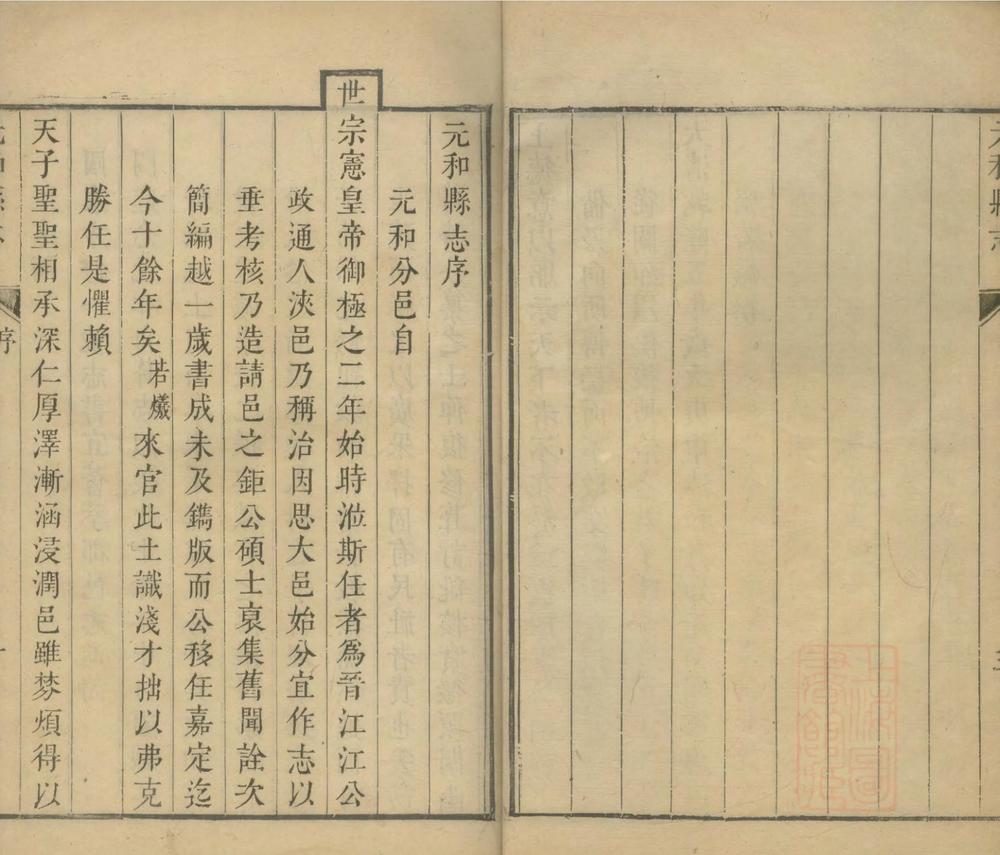 元和縣志
元和縣志序
元和分邑自
世宗憲皇帝御極之二年始時涖斯任者爲晉江江公
政通人浹邑乃稱治因思大邑始分宜作志以
垂考核乃造請邑之鉅公碩士裒集舊聞詮次
簡編越一歲書成未及鐫版而公移任嘉定迄
今十餘年矣若爔來官此土識淺才拙以弗克
勝任是懼賴
天子聖聖相承深仁厚澤漸涵浸潤邑雖棼煩得以
元和縣志
序